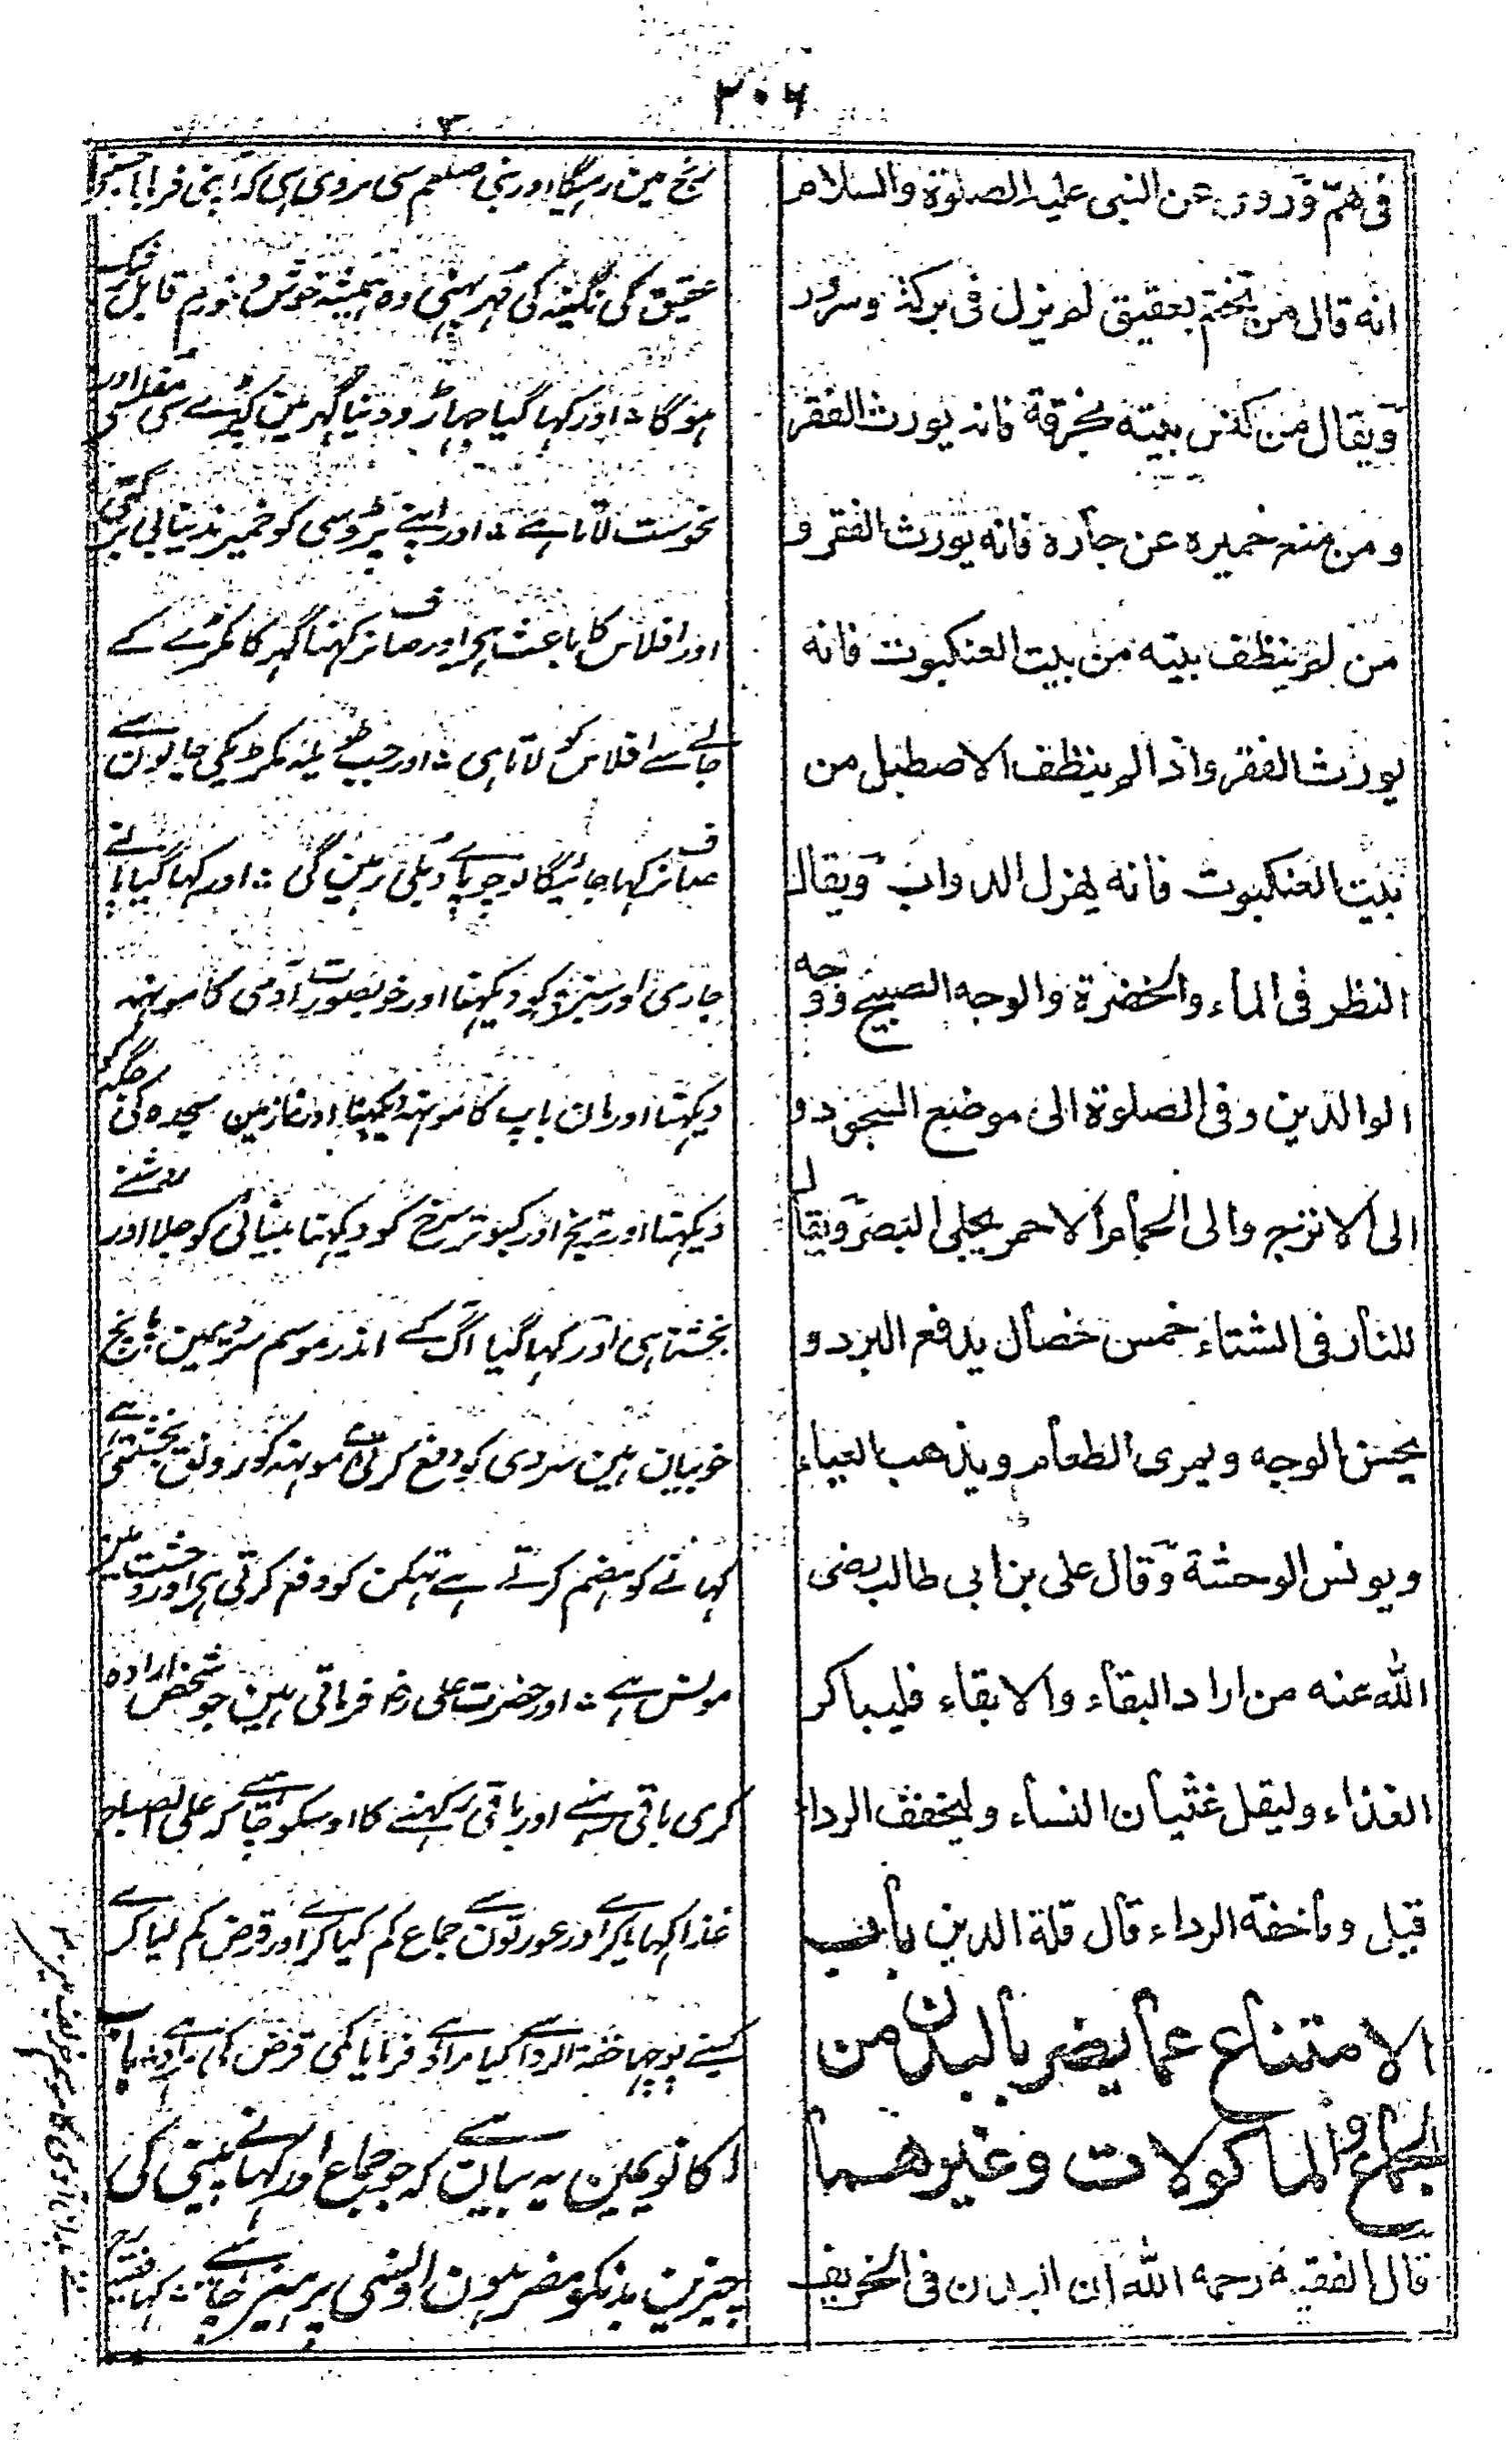 ٣٠٦
فی همّ وروی عن النبی علیہ الصلوة والسلام
انه قال من تختم بعقیق لم یزل فی برکة وسرور
ویقال من کنس بیته بخرقة فانه یورث الفقر
ومن منع خمیره عن جاره فانه یورث الفقر و
من لم ینظف بیته من بیت العنکبوت فانه
یورث الفقر واذا لم ینظف الاصطبل من
بیت العنکبوت فانه یهزل الدواب ویقال
النظر فی الماء والخضرة والوجه الصبیح ووجه
الوالدین وفی الصلوة الی موضع السجود و
الی الاترج والی الحمام الاحمر یجلی البصر ویقال
للنار فی الشتاء خمس خصال یدفع البرد و
یحسن الوجه ویمری الطعام ویذهب العیاء
ویونس الوحشة وقال علی بن ابی طالب رضی
الله عنه من اراد البقاء والابقاء فلیباکر
الغذاء ولیقل غثیان النساء ولیخفف الرداء
قیل وما خفة الرداء قال قلة الدین باب
الامتناع عما یضر بالبدن من
الجماع والماکولات وغیرهما
قال الفقیه رحمه الله ان البدن فی الخریف
رنج مین رہیگا اور نبی صلعم سی مروی ہی کہ آپنی فرمایا جسنی
عقیق کی نگینہ کی مُہر پہنی وہ ہمیشہ خوش و خورم قابل
ہوگا ؞ اور کہا گیا جہاڑو دینا گہر مین کپڑے سی مفلسی اور
نحوست لاتا ہے ؞ اور اپنے پڑوسی کو خمیر ندینا بی برکتی
اور افلاس کا باعث ہی اور صاف نرکہنا گہر کا مکڑے کے
جالے سے افلاس کو لاتا ہی ؞ اور جب طویلہ مکڑیکی جالون سے
صاف نرکہا جائیگا تو چوپاے دبلی رہین گی ؞ اور کہا گیا پانے
جاری اور سبزہ کو دیکہنا اور خوبصورت آدمی کا مونہہ
دیکہنا اور مان باپ کا مونہہ دیکہنا اور نماز مین سجدہ کی جگہ کو
دیکہنا اور ترنج اور کبوتر سرخ کو دیکہنا بینائی کو جلا اور روشنے
بخشتا ہی اور کہا گیا آگ کے اندر موسم سرما مین پانچ
خوبیان ہین سردی کو دفع کرتی ہے مونہہ کو رونق بخشتی ہے
کہانے کو ہضم کرتے ہے تہکن کو دفع کرتی ہی اور وحشت مین
مونس ہے ؞ اور حضرت علی رض فرماتی ہین جو شخص ارادہ
کری باقی رہنے اور باقی رکہنے کا اوسکو چاہیے کہ علی الصباح
غذا کہایا کرے اور عورتون سے جماع کم کیا کرے اور قرض کم لیا کرے
کسنے پوچہا خفة الرداسے کیا مراد ہے فرمایا کمی قرض کی مراد ہے ؞ باب
اکانویمین یہ بیان ہے کہ جو جماع اور کہانے پینی کی
چیزین بدنکو مضر ہون اونسی پرہیز چاہئے ؞ کہا فقیہ رح